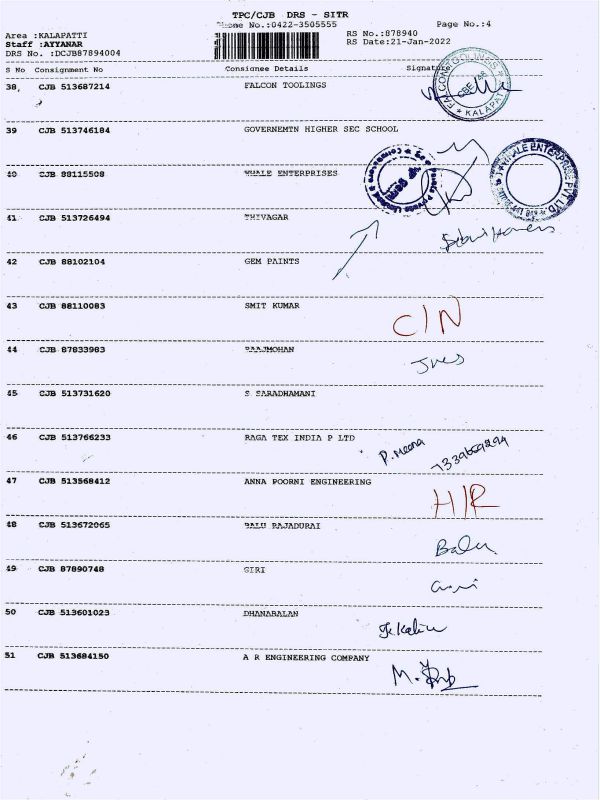 TPC/CJB DRS - SITR
Phone No.:0422-3505555
Page No.:4
Area :KALAPATTI
RS No.:878940
Staff :AYYANAR
RS Date:21-Jan-2022
DRS No. :DCJB87894004
S No Consignment No Consignee Details Signature
38, CJB 513687214 FALCON TOOLINGS
FALCON TOOLINGS
CBE - 48
KALAPATTI
39 CJB 513746184 GOVERNEMTN HIGHER SEC SCHOOL
40 CJB 88115508 WHALE ENTERPRISES
WHALE ENTERPRISE PVT LTD
41 CJB 513726494 THIVAGAR
42 CJB 88102104 GEM PAINTS
43 CJB 88110083 SMIT KUMAR
C/N
44 CJB 87833983 RAAJMOHAN
45 CJB 513731620 S SARADHAMANI
46 CJB 513766233 RAGA TEX INDIA P LTD
P. Meena
47 CJB 513568412 ANNA POORNI ENGINEERING
H/R
48 CJB 513672065 BALU RAJADURAI
Balu
49 CJB 87890748 GIRI
Giri
50 CJB 513601023 DHANABALAN
51 CJB 513684150 A R ENGINEERING COMPANY